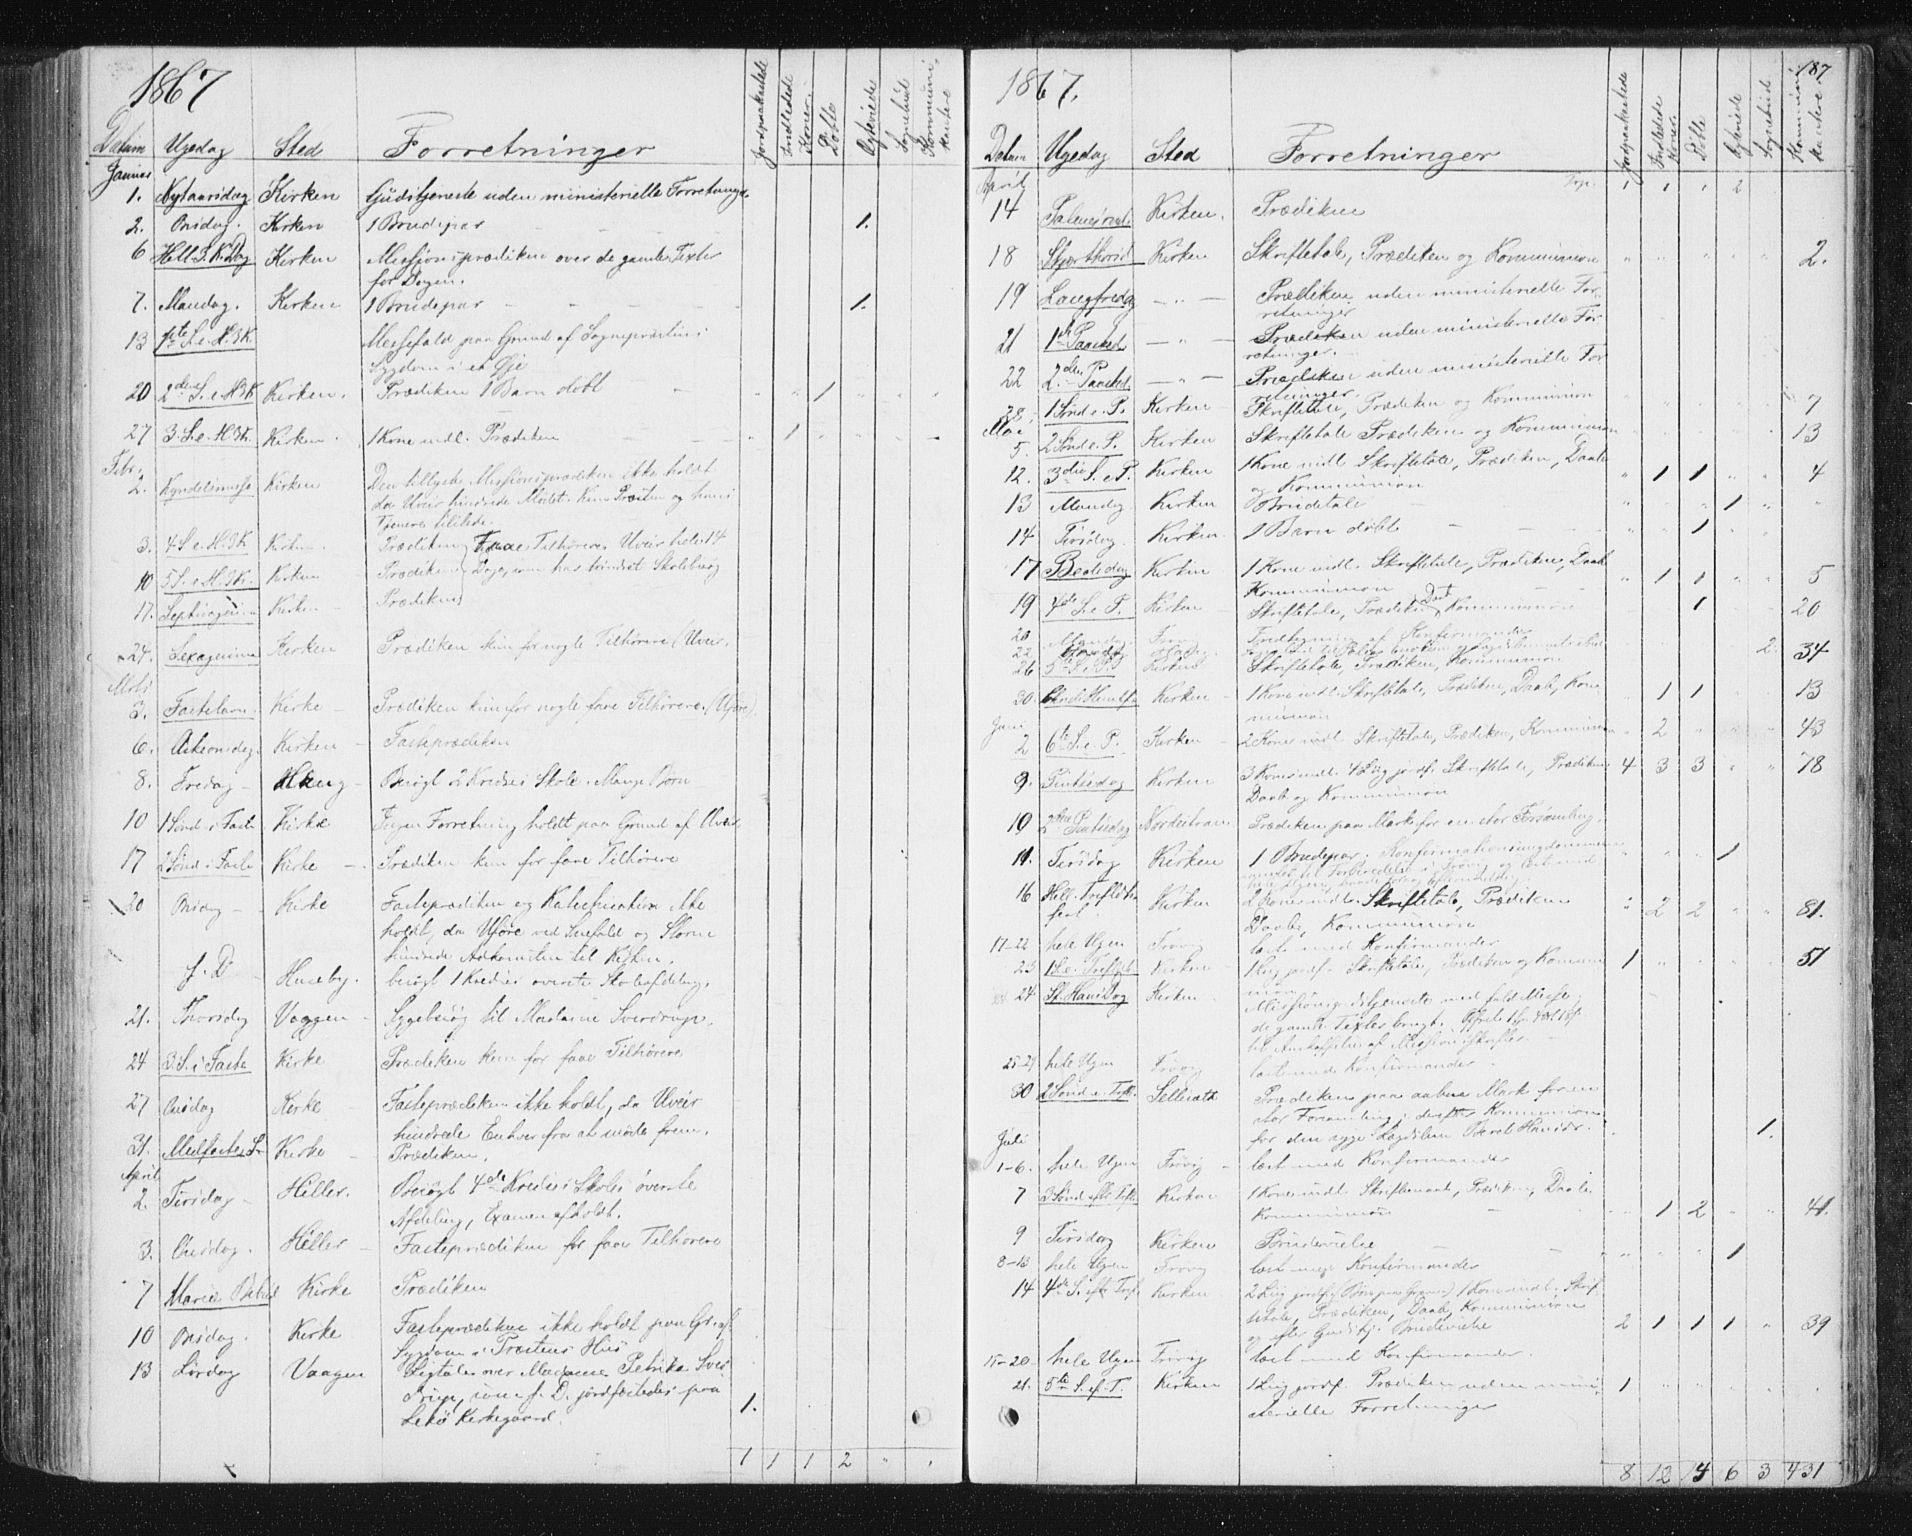 1867
Datum Ugedag Sted Forretninger Jordpaakastede Indledede Koner. Døbte Egteviede Sognebud Kommunikantere
Januar
1. Nytaarsdag Kirken Gudstjeneste uden ministerielle Forretninger
2. Onsdag. Kirken 1 Brudepar 1.
6 Hell. 3. K. Dag Kirken Missionsprædiken over de gamle Texter
for Dagen.
7. Mandag. Kirken 1 Brudepar 1.
13 1ste S. e. H. 3 K. Messefald paa Grund af Sognepræstens
Sygdom i et Øje
20 2den S. e. H 3 K Kirken. Prædiken 1 Barn døbt 1
27 3. S. e. H. 3 K. Kirken. 1 Kone indl. Prædiken 1
Febr.
2. Kyndelsmesse Kirken Den tillyste Missionsprædiken ikke holdt
da Uveir hindrede Mødet. Kun Præsten og hans
Tjenere tilstede.
3. 4 S. e. H. 3 K Kirken. Prædiken Faae Tilhørere Uveir hele 14
10 5 S. e. H. 3 K. Kirken Prædiken Dage, som har hindret Skolebesøg
17. Septuagesima Kirken Prædiken
24. Sexagesima Kirken Prædiken kun for nogle Tilhørere (Uveir.
Mots
3. Fastelavn. Kirke Prædiken kun for nogle faae Tilhørere. (Uføre)
6. Askeonsdag. Kirken Fasteprædiken
8. Fredag Haug Besøgt 2 Kredses Skole. Mange Børn
10 1 Sønd. i Faste Kirke Ingen Forretning holdt paa Grund af Uveir
17 2 Sønd. i Faste Kirke Prædiken kun for faae Tilhørere
20 Onsdag Kirke Fasteprædiken og Katechisation ikke
holdt, da Uføre ved Snefald og Storm
hindrede Adkomsten til Kirken.
f. D Huseby. besøgt 1 Kredses øverste Skoleafdeling.
21. Thorsdag Vaagen Sygebesøg til Madame Sverdrup.
24 3. S. i Faste Kirke Prædiken kun for faae Tilhørere
27 Onsdag Kirke Fasteprædiken ikke holdt, da Uveir
hindrede Enhver fra at møde frem.
31. Midfaste S. Kirke Prædiken.
April
2. Tirsdag Hiller. Besøgt 4de Kredses Skoles øverste
Afdeling, Examen afholdt.
3. Onsdag. Hiller Fasteprædiken for faae Tilhørere
7 Mariæ Bebud Kirke Prædiken
10 Onsdag. Kirke Fasteprædiken ikke holdt paa Gr. af
Sygdom i Præstens Hus
13 Lørdag Vaagen Ligtale over Madame Petrika Sver
drup, som f. D. jordfæstedes paa
Lekø Kirkegaard. 1.
1 1 1 2 " .
1867. 187
Datum Ugedag Sted Forretninger Jordpaakastede Indledede Koner. Døbte Egteviede Sognebud Kommunikantere
April Trsp. 1 1 1 2
14 Palmesønd. Kirken. Prædiken
18 Skjærthorsd Kirken Skriftetale, Prædiken og Kommunion 2.
19 Langfredag — " — Prædiken uden ministerielle For
retninger
21 1ste Paaskd — " — Prædiken uden ministerielle For
retninger.
22 2den Paaskd. — " — Prædiken uden ministerielle For
retninger
28. 1 Sønd e. P. Kirken Skriftetale, Prædiken og Kommunion 7
Mai
5. 2 Sønd e. P. Kirken Skriftetale Prædiken og Kommunion 13
12. 3die S. e. P. Kirken 1 Kone indl. Skriftetale, Prædiken, Daab
og Kommunion 1 1 4
13 Mandag Kirken Brudetale 1
14 Tirsdag. Kirken. 1 Barn døbt 1
17 Bededag Kirken 1 Kone indl. Skriftetale, Prædiken, Daab
Kommunion 1 1 5
19 4de S. e. P. Kirken Skriftetale, Prædiken, Daab Kommunion 1 20
20 Mandag Frøvig Indtegning af Konfirmander
22 2.
26 5te S. e. P. Kirken Skriftetale, Prædiken, Kommunion 34
30. Christi Himmelf. Kirken 1 Kone indl. Skriftetale, Prædiken, Daab, Kom
munion 1 1 13
Juni
2 6te S. e. P. Kirken 2 Kone indl. Skriftetale, Prædiken, Kommunion 2 43
9. Pintsedag Kirken 3 Koner indl. 4 Lig jordf. Skriftetale, Prædiken 4 3 3 78
Daab og Kommunion
10 2den Pintsedag Nordestran Prædiken paa Mark for en stor Forsamling.
11. Tirsdag Kirken 1 Brudepar. Konfirmationsungdommen 1
16 Hell. Trefoldh. Kirken 2 Koner indl. Skriftetale, Prædiken
fest. Daab, Kommunion 2 2 81.
17-22 hele Ugen Frøvig læst med Konfirmander
23 1 S. e. Trefold Kirken 1 Lig jordf. Skriftetale, Prædiken og Kommu 1 51
nion
24 St. Hansdag Kirken Missionsgudstjeneste med fuld Messe,
de gamle Texter brugt.
til Anskaffelse af Missionsskrifter
25-29 hele Ugen Frøvig læst med Konfirmander
30 2 Sønd. e. Tref. Sellisat Prædiken paa aaben Mark for en
stor Forsamling; derefter Kommunion
for den syge Beret Hansdr. 1.
Juli
1-6. hele Ugen Frøvig læst med Konfirmander
7 3 Sønd efter Tref. Kirken 1 Kone indl. Skriftemaal, Prædiken, Daab
Kommunion 1 2 41.
9 Tirsdag Kirken Brudevielse 1
8-13 hele Ugen Frøvig læst med Konfirmander
14 4de S. eft Tref. Kirken 2 Lig jordf. 1 Kone indl. Skrif
tetale, Prædiken, Daab, Kommunion
og efter Gudstj. Brudevielse 2 1 1 1 39
15-20 hele Ugen Frøvig læst med Konfirmander.
21. 5te S. ef. T. Kirken 1 Lig jordf. Prædiken uden mini 1
sterielle Forretninger
8 12 14 6 3 431